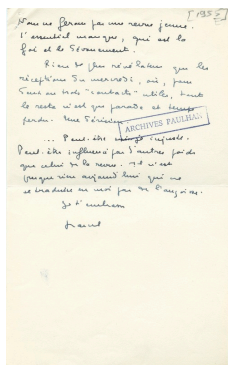 [1955]
Nous ne ferons pas une revue jeune.
L'essentiel manque, qui est la
foi et le dévouement.
Rien de plus révélateur que les
réceptions du mercredi, où, pour
deux ou trois "contacts" utiles, tout
le reste n'est que parade et temps
perdu. Une dérision
ARCHIVES PAULHAN
... Peut-être injuste.
Peut-être influencé par d'autres poids
que celui de la revue. Il n'est
presque rien aujourd'hui qui ne
se traduise en moi par de l'angoisse.
Je t'embrasse
Marcel